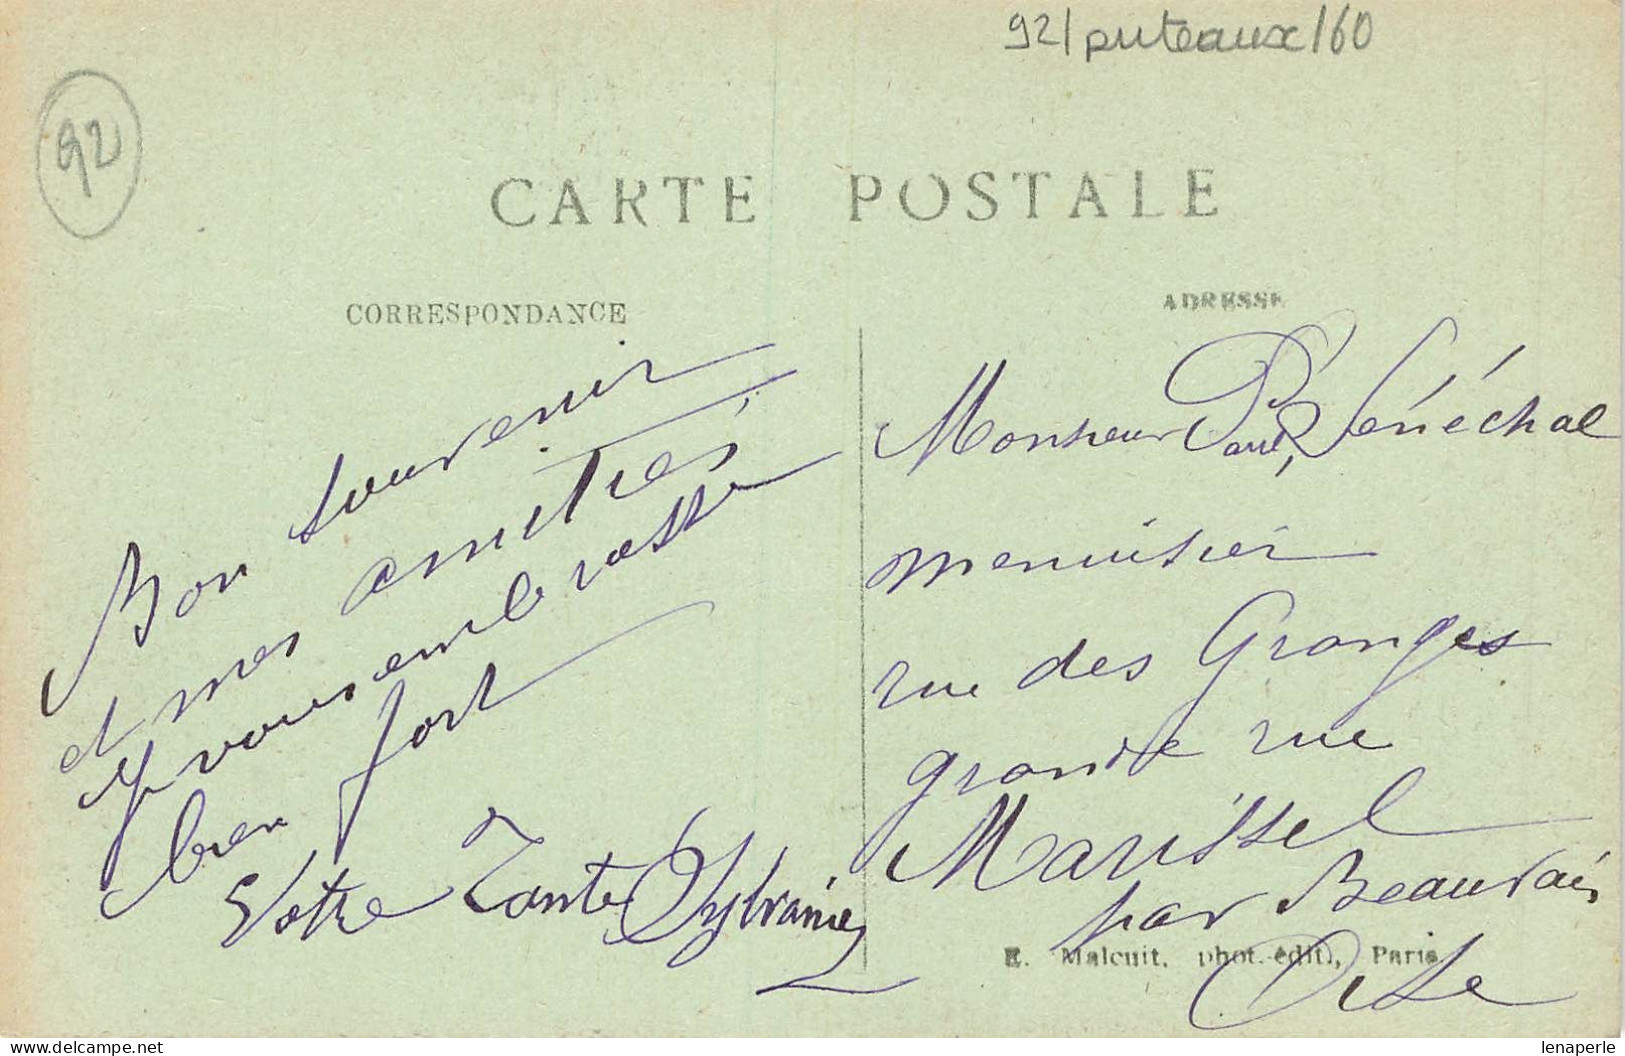 92/puteaux/60
92
CARTE POSTALE
CORRESPONDANCE
Bon souvenir
et mes amitiés
je vous embrasse
bien fort
Votre Tante Sylvanie
ADRESSE
Monsieur Paul Sénéchal
menuisier
rue des Granges
grande rue
Marissel
par Beauvais
Oise
E. Malcuit, phot.-édit., Paris
delcampe.net
lenaperle